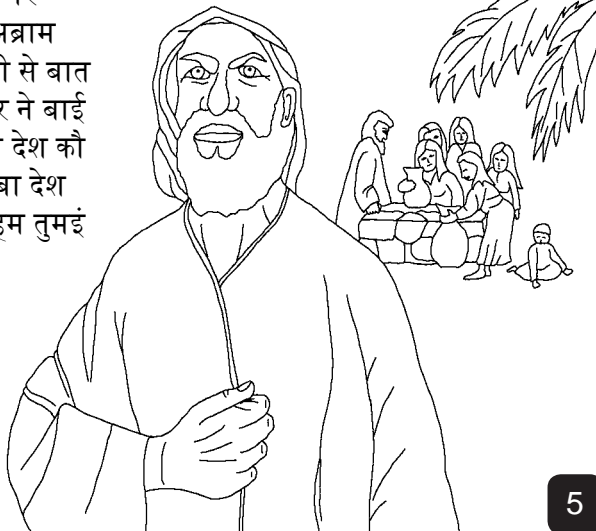 अब्राम
से बात
र ने बाई
देश कौ
बा देश
हम तुमइं
5